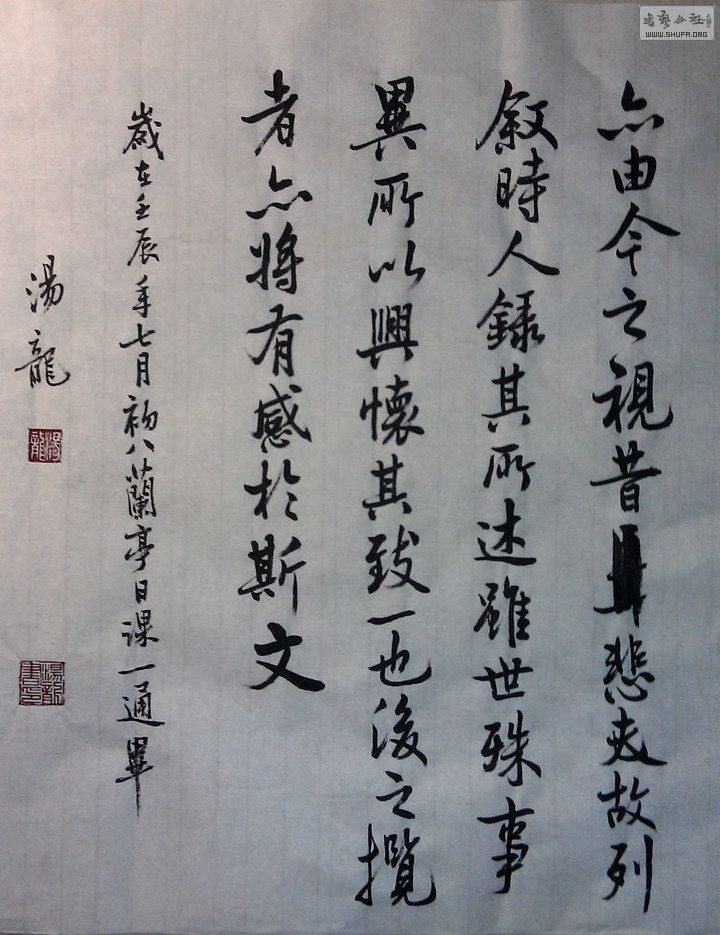 亦由今之視昔悲夫故列
叙時人錄其所述雖世殊事
異所以興懷其致一也後之攬
者亦將有感於斯文
歲在壬辰年七月初八蘭亭日課一通畢
湯龍
湯龍
書藝公社
WWW.SHUFA.ORG